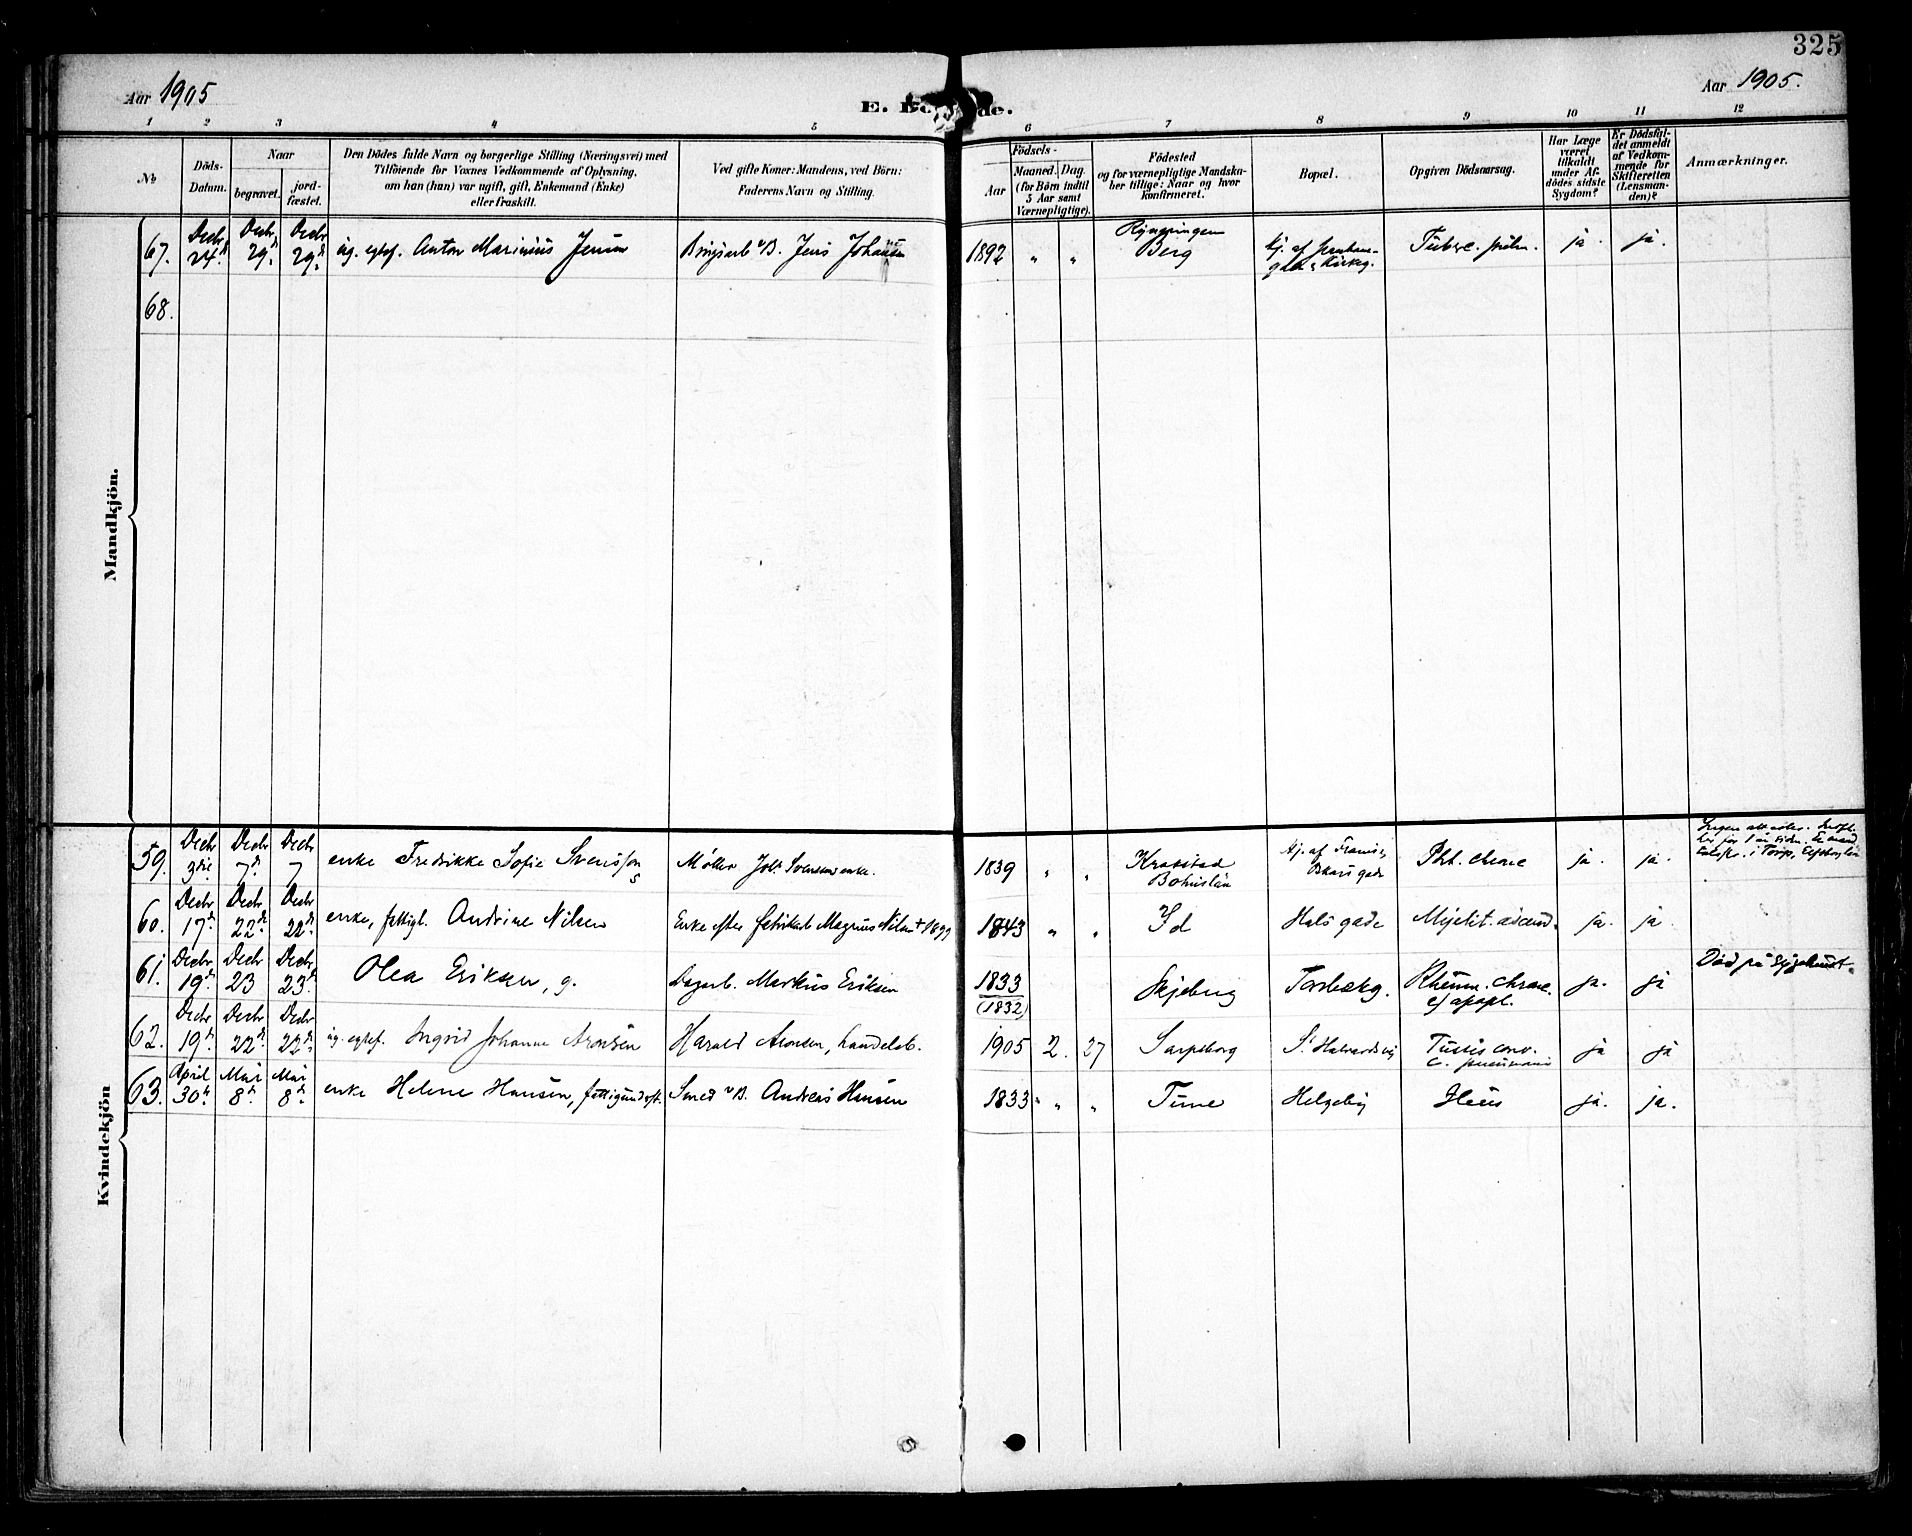 325
Aar 1905
Aar 1905.
E. Be de.
1 2 3 4 5 6 7 8 9 10 11 12
No
Döds-
Datum.
Naar
begravet.
jord-
fæstet.
Den Dödes fulde Navn og borgerlige Stilling (Næringsvei) med
Tilföiende for Voxnes Vedkommende af Oplysning,
om han (hun) var ugift, gift, Enkemand (Enke)
eller fraskilt.
Ved gifte Koner: Mandens, ved Börn:
Faderens Navn og Stilling.
Födsels-
Aar
Maaned. Dag.
(for Börn indtil
5 Aar samt
Værnepligtige).
Födested
og for værnepligtige Mandska-
ber tillige: Naar og hvor
konfirmeret.
Bopæl.
Opgiven Dödsaarsag.
Har Læge
været
tilkaldt
under Af-
dödes sidste
Sygdom?
Er Dödsfal-
det anmeldt
af Vedkom-
mende for
Skifteretten
(Lensman-
den)?
Anmærkninger.
Mandkjön.
67. Decbr 24d Decbr 29d Decbr 29d ug. egtef. Anton Marinius Jensen Jens Johansen 1892 " " Berg Kirkeg. Tuberc. pulm. ja. ja.
68.
Kvindekjön
59. Decbr 3die Decbr 7d Decbr 7 enke Fredrikke Sofie Svensson Møller Joh. Svenssons enke. 1839 " " Krakstad
Bohuslän
Hj. af
Oskars gade
Pht. chrone ja. ja.
60. Decbr 17d Decbr 22d Decbr 22d enke, fattigl. Andrine Nilsen Enke efter fabrikarb Magnus Nilsen + 1899 1843 " " Id Hals gade ja. ja.
61. Decbr 19d Decbr 23 Decbr 23d Olea Eriksen, g. Dagarb. Markus Eriksen 1833
(1832)
Skjeberg Torsbækg. Rheum. chrone.
apopl.
ja. ja Död på Sygehuset.
62. Decbr 19d Decbr 22d Decbr 22d ug. egtef. Ingrid Johanne Aronsen Harald Aronsen, handelsb. 1905 2. 27 Sarpsborg St Halvardsvej Tussis conv.
C. pneumoni
ja ja
63. April 30te Mai 8d Mai 8d enke Helene Hansen, fattigunderst. Smed v B. Andreas Hansen 1833 " " Tune Helgeby Ileus ja. ja.